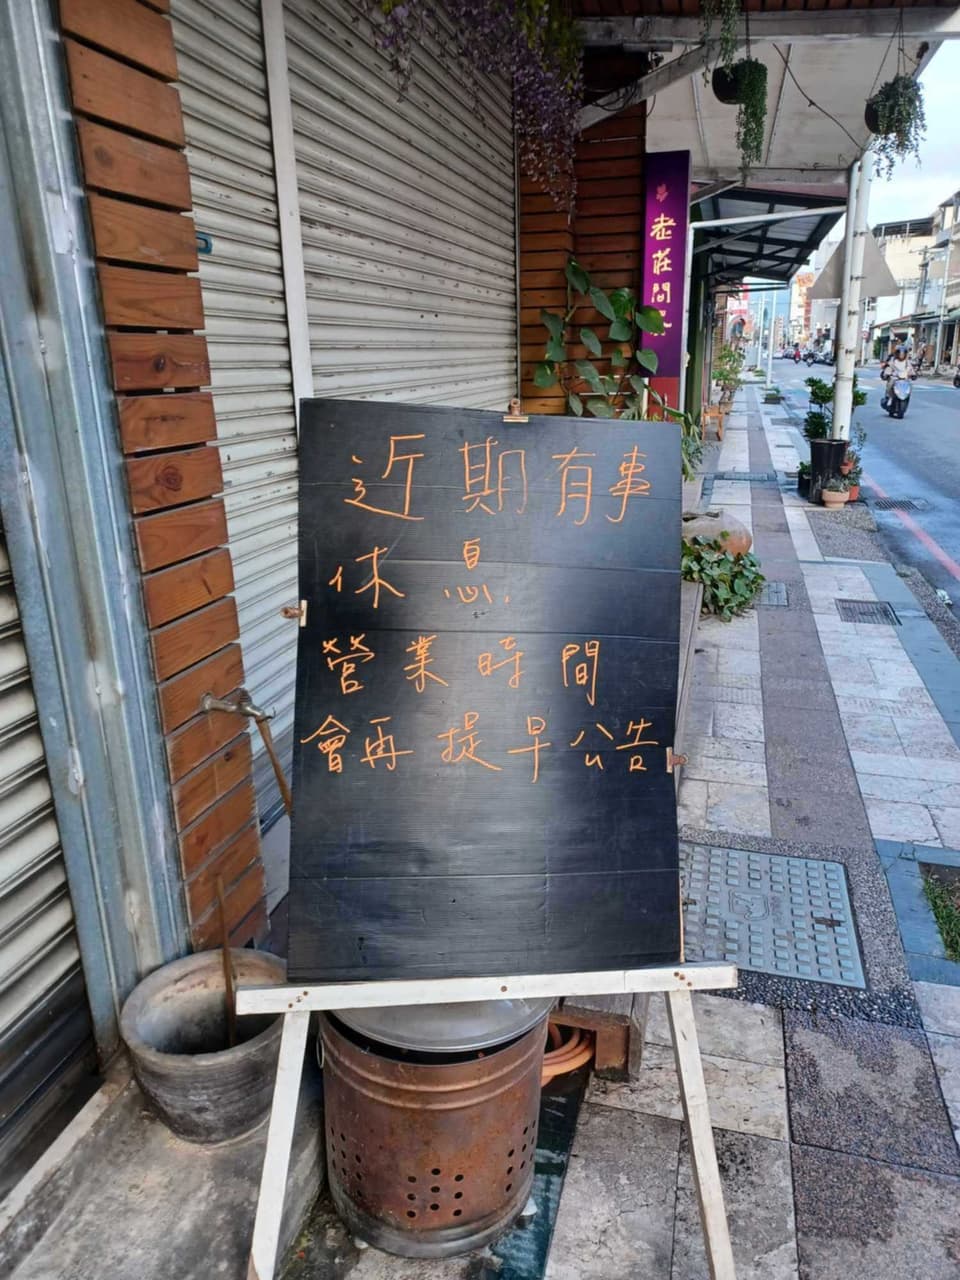 近期有事
休息.
營業時間
會再提早公告
老莊問